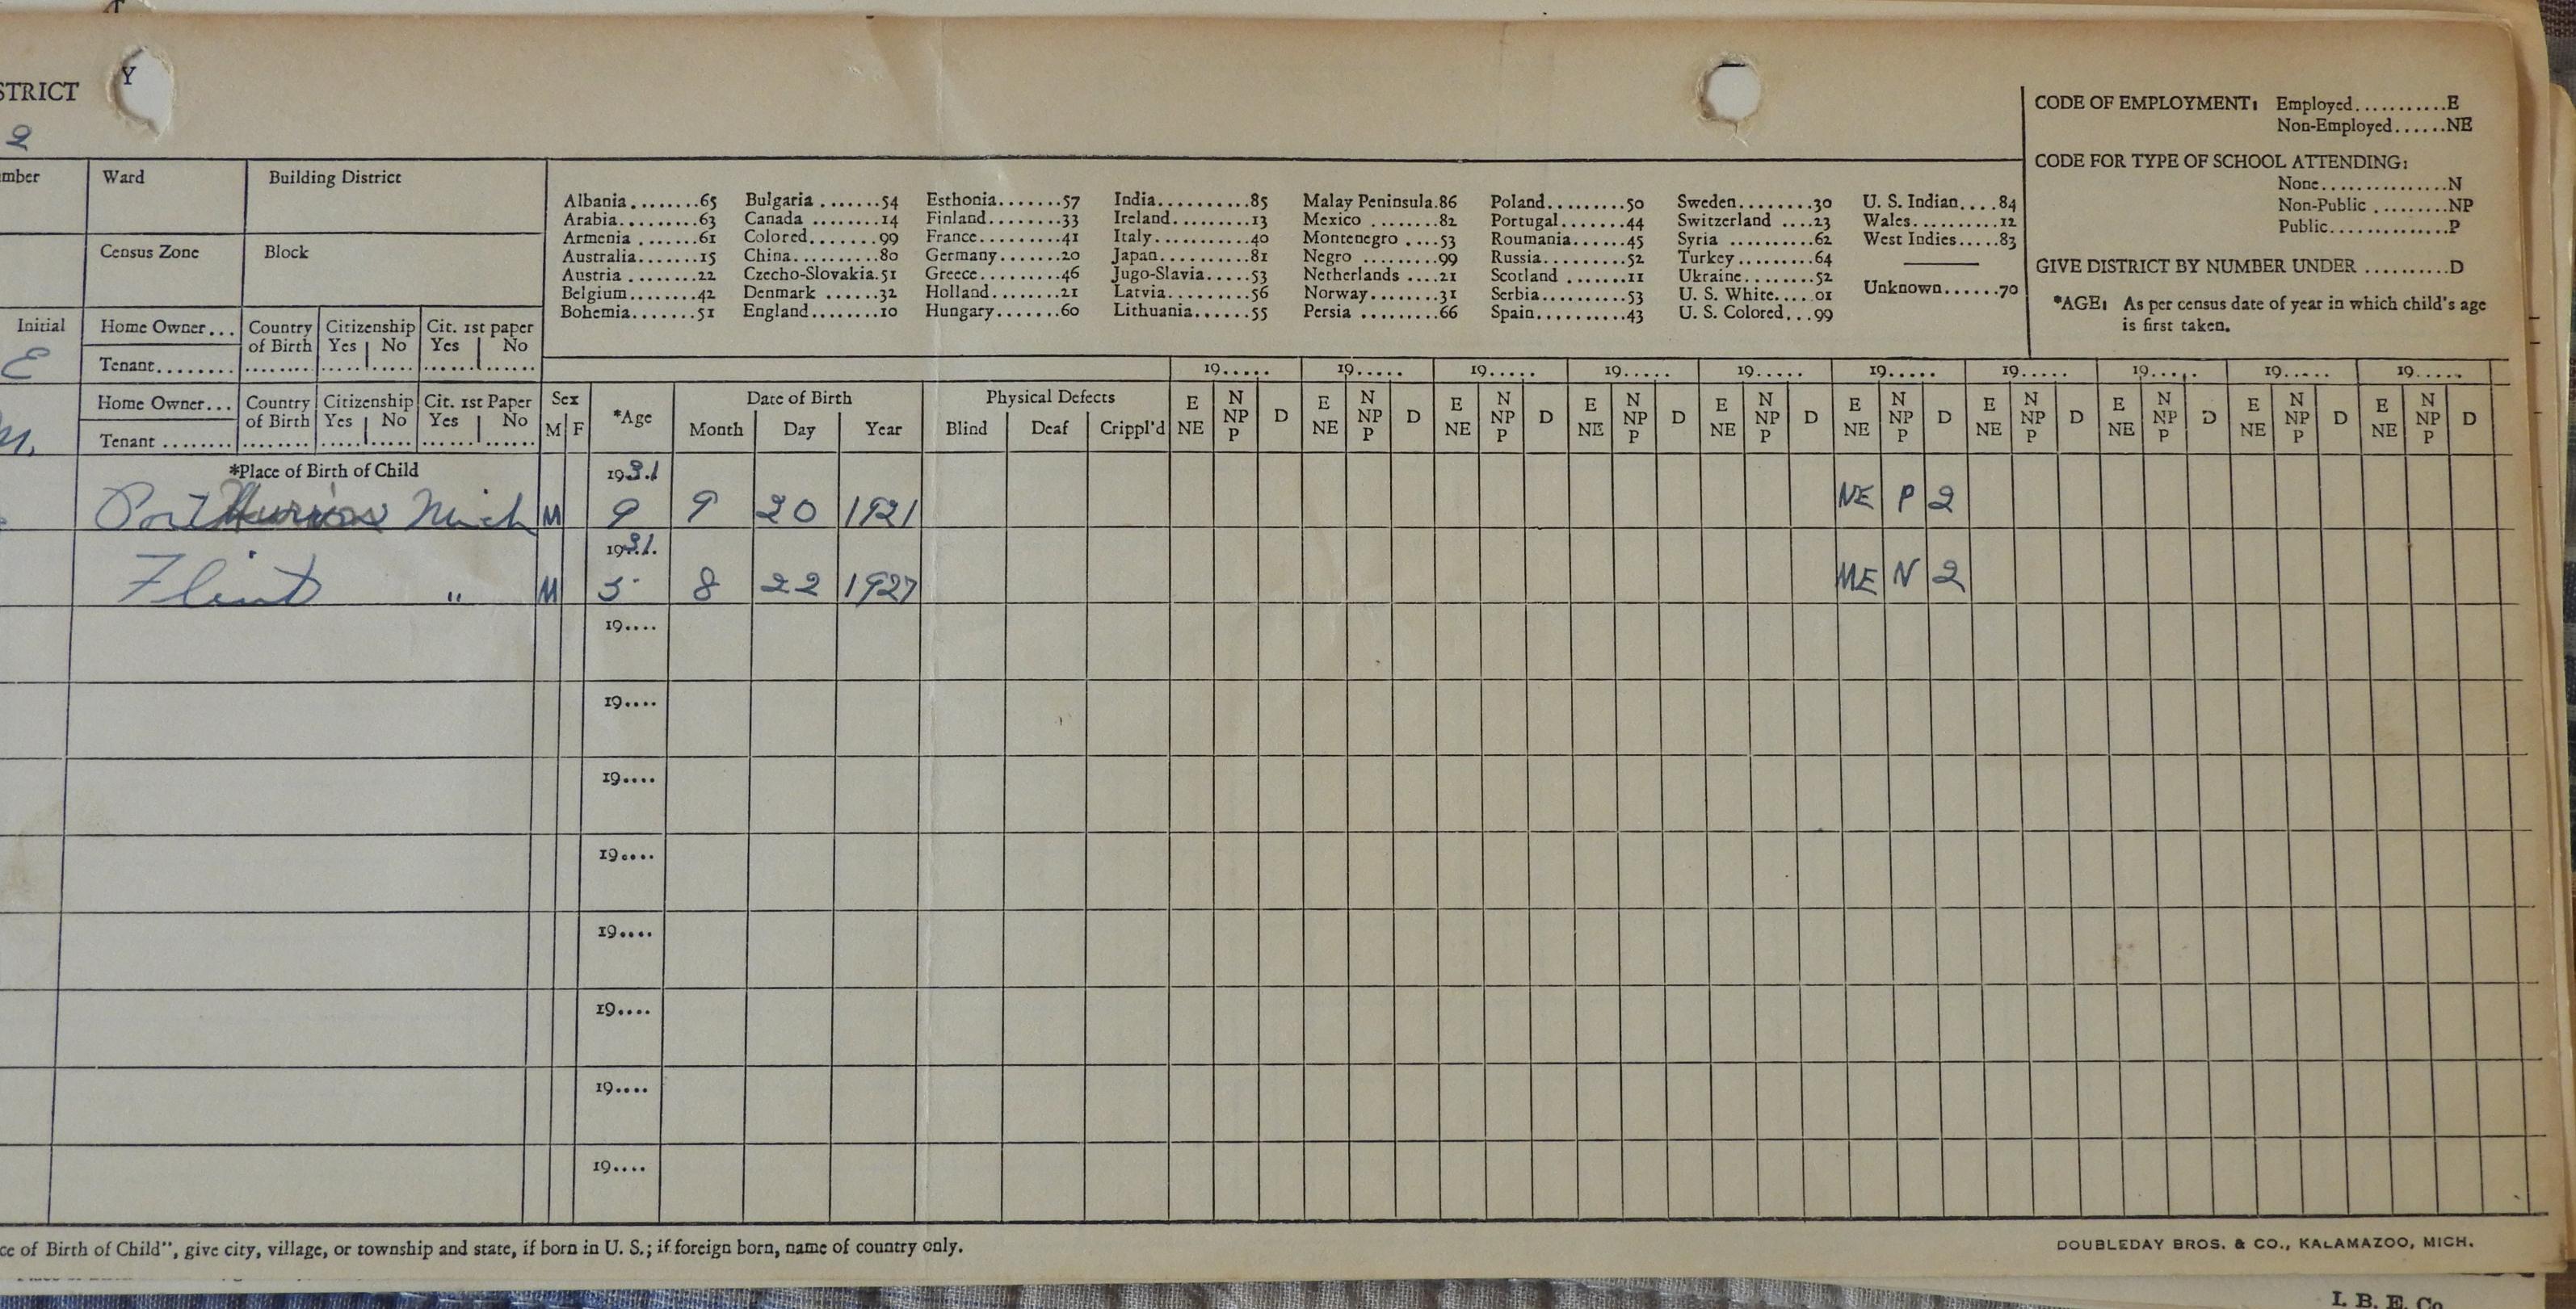 STRICT Y
2
mber Ward Building District
Census Zone Block
Initial Home Owner... Country of Birth Citizenship Yes No Cit. 1st paper Yes No
E Tenant........
Home Owner... Country of Birth Citizenship Yes No Cit. 1st Paper Yes No
M. Tenant ........
Albania........65 Bulgaria.......54 Esthonia.......57 India..........85 Malay Peninsula.86 Poland.........50 Sweden........30 U. S. Indian....84
Arabia.........63 Canada ........14 Finland........33 Ireland........13 Mexico ........82 Portugal.......44 Switzerland ....23 Wales..........12
Armenia .......61 Colored........99 France.........41 Italy..........40 Montenegro ....53 Roumania......45 Syria ..........62 West Indies.....83
Australia......15 China..........80 Germany.......20 Japan..........81 Negro .........99 Russia.........52 Turkey.........64
Austria ........22 Czecho-Slovakia.51 Greece.........46 Jugo-Slavia.....53 Netherlands ....21 Scotland .......11 Ukraine........52
Belgium........42 Denmark ......32 Holland........21 Latvia.........56 Norway........31 Serbia..........53 U. S. White.....01 Unknown......70
Bohemia.......51 England........10 Hungary.......60 Lithuania......55 Persia .........66 Spain..........43 U. S. Colored...99
CODE OF EMPLOYMENT: Employed...........E
Non-Employed......NE
CODE FOR TYPE OF SCHOOL ATTENDING:
None...............N
Non-Public .........NP
Public..............P
GIVE DISTRICT BY NUMBER UNDER ..........D
*AGE: As per census date of year in which child's age
is first taken.
19..... 19..... 19..... 19..... 19..... 19..... 19..... 19..... 19..... 19.....
Sex M F *Age Date of Birth Month Day Year Physical Defects Blind Deaf Crippl'd E NE N NP P D E NE N NP P D E NE N NP P D E NE N NP P D E NE N NP P D E NE N NP P D E NE N NP P D E NE N NP P D E NE N NP P D E NE N NP P D
*Place of Birth of Child 1931
Port Huron Mich M 9 9 20 1921 NE P 2
1931.
Flint " M 3 8 22 1927 NE N 2
19....
19....
19....
19....
19....
19....
19....
19....
ce of Birth of Child", give city, village, or township and state, if born in U. S.; if foreign born, name of country only.
DOUBLEDAY BROS. & CO., KALAMAZOO, MICH.
I. B. E. Co.